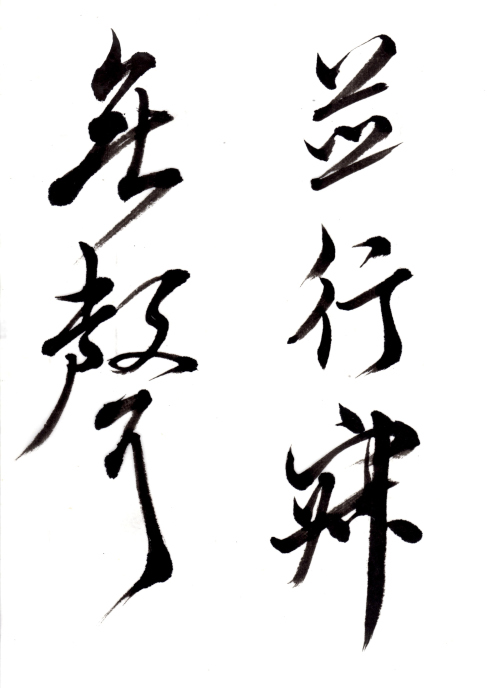 並行寂
無聲